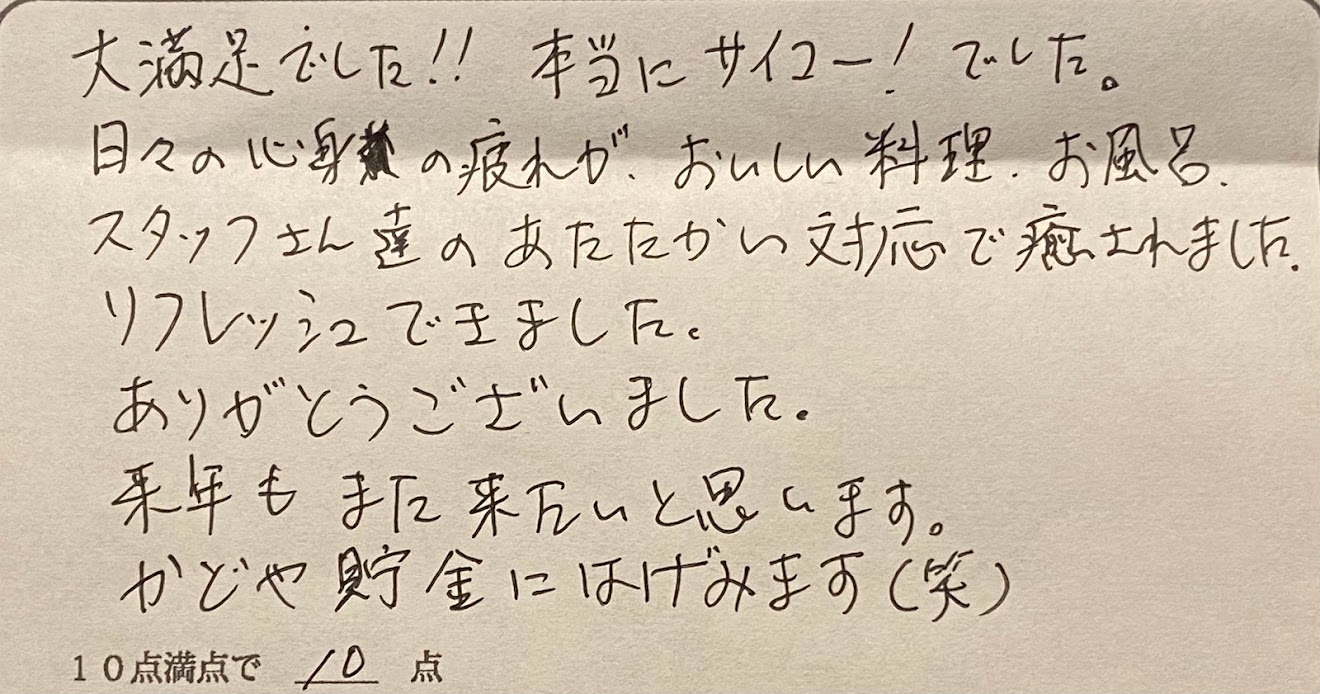 大満足でした!! 本当にサイコー!でした。
日々の心身の疲れが、おいしい料理、お風呂、
スタッフさん達のあたたかい対応で癒されました。
リフレッシュできました。
ありがとうございました。
来年もまた来たいと思います。
かどや貯金にはげみます(笑)
10点満点で 10 点